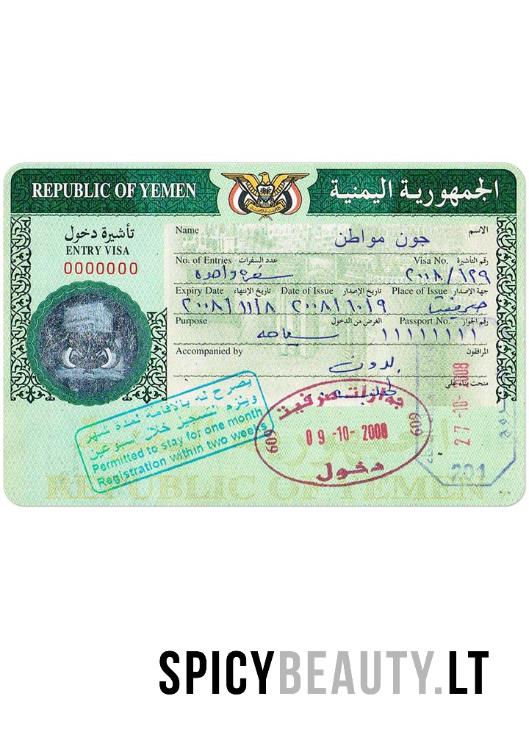 REPUBLIC OF YEMEN
الجمهورية اليمنية
تأشيرة دخول
ENTRY VISA
0000000
Name جون مواطن الاسم
No. of Entries عدد السفرات سفرة واحدة Visa No. رقم التأشيرة ٢٠٠٨/٦٢٩
Expiry Date تاريخ الإنتهاء Date of Issue تاريخ الإصدار Place of Issue جهة الإصدار
٢٠٠٨/١١/٨ ٢٠٠٨/١٠/٩
Purpose الغرض من الدخول سياحه Passport No. رقم الجواز ١١١١١١١١١
Accompanied by بدون المرافقون
منحت بناء على
يصرح له بالاقامة لمدة شهر
ويلزم التسجيل خلال اسبوعين
Permitted to stay for one month
Registration within two weeks
609
09-10-2008
609
دخول
27-10-2008
201
REPUBLIC OF YEMEN
SPICYBEAUTY.LT